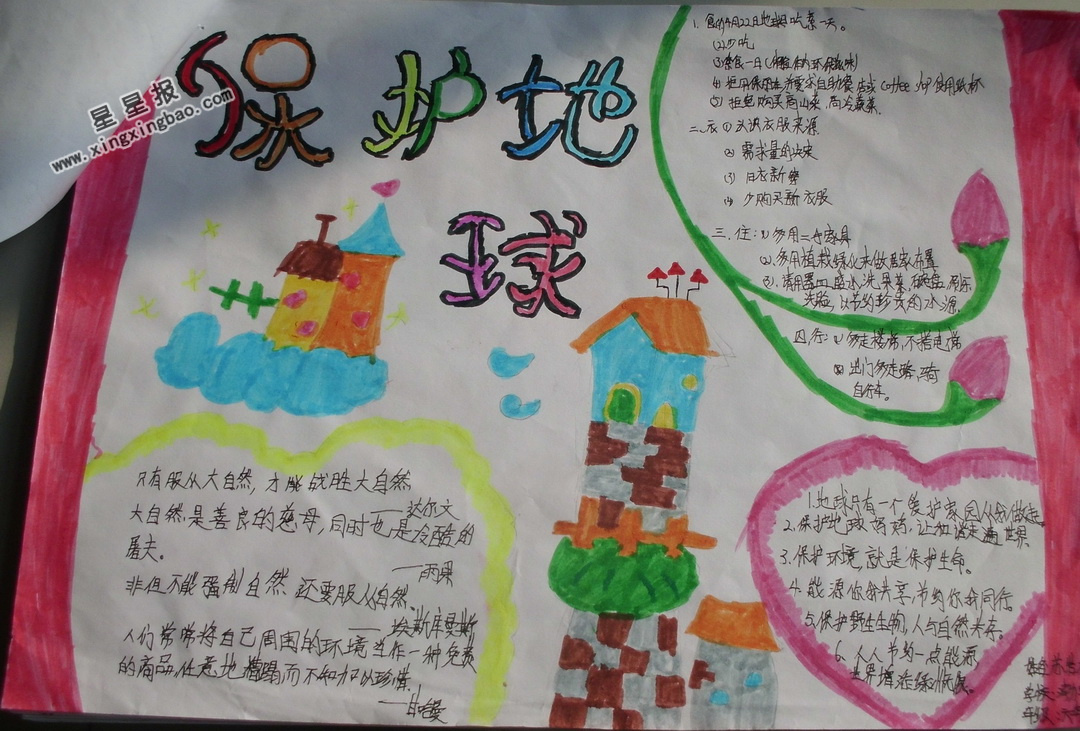 星星报
www.xingxingbao.com
保护地
球
1. 食(1)4月22日地球日吃素一天。
(2)少吃
(3)素食一日
(4) 自助餐 店或 coffee 使用纸杯
(5) 拒绝购买高山菜 高冷蔬菜。
二、衣(1)认识衣服来源
(2) 需求量的决定
(3) 旧衣新
(4) 少购买新衣服
三、住:(1)多用二手家具
(2)多用植栽绿化来做居家布置
(3)请用 水洗果菜、刷牙
洗脸,以节约珍贵的水源。
四、行:(1)多走楼梯,不搭电梯
(2)出门多走路、骑
自行车。
只有服从大自然,才能战胜大自然
——达尔文
大自然是善良的慈母,同时也是冷酷的
屠夫。
——雨果
非但不能强制自然,还要服从自然。
——埃斯库罗斯
人们常常将自己周围的环境当作一种免费
的商品,任意地糟蹋而不知加以珍惜。
——甘哈曼
1.地球只有一个,爱护家园从我做起。
2.保护地球妈妈,让 走遍世界。
3.保护环境,就是保护生命。
4.能源你我共享,节约你我同行。
5.保护野生生物,人与自然共存。
6、人人节约一点能源,
世界增添绿
姓名
学校
年级